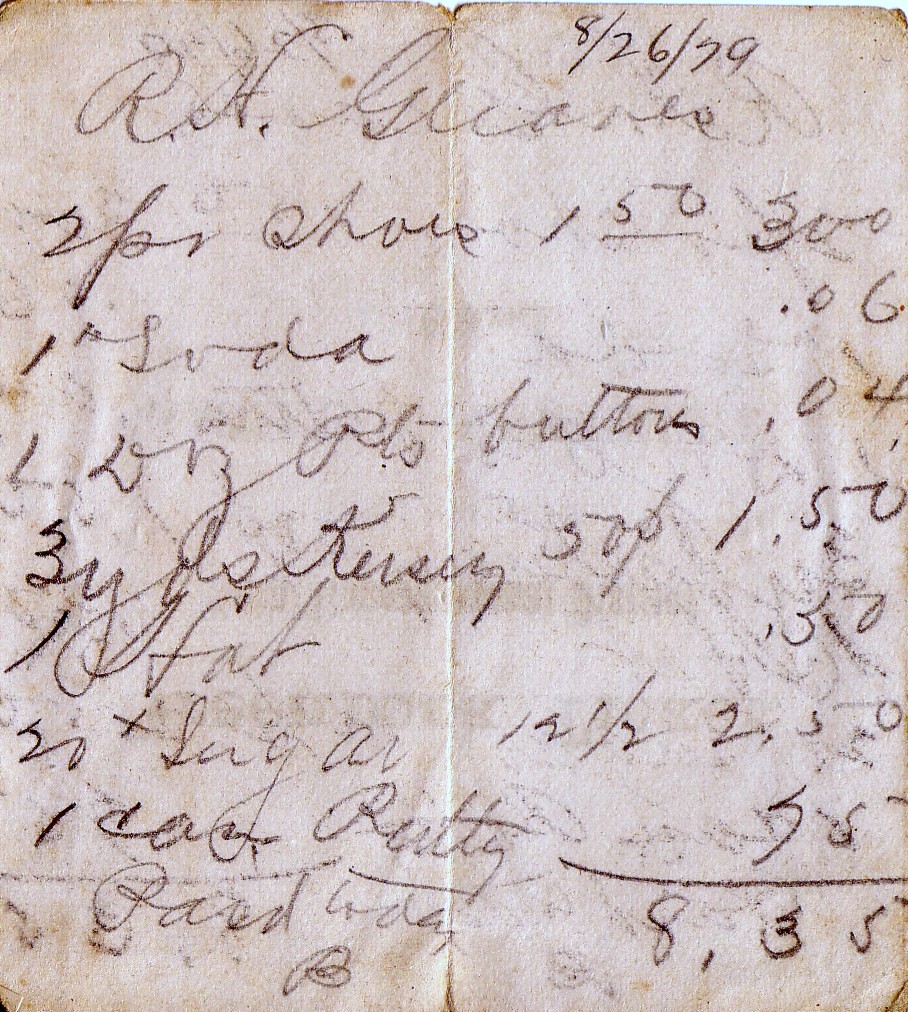 8/26/79
R.H. Gleaves
2 pr Shoes 1 50 3 00
1 # Soda .06
1 Dz Pts buttons .04
3 yds Kersey 50¢ 1.50
1 Hat .50
20 # Sugar 12 1/2 2.50
1 can Putty 75
Paid today 8.35
B